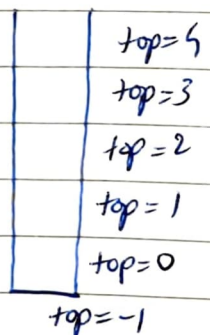 top=4
top=3
top=2
top=1
top=0
top=-1